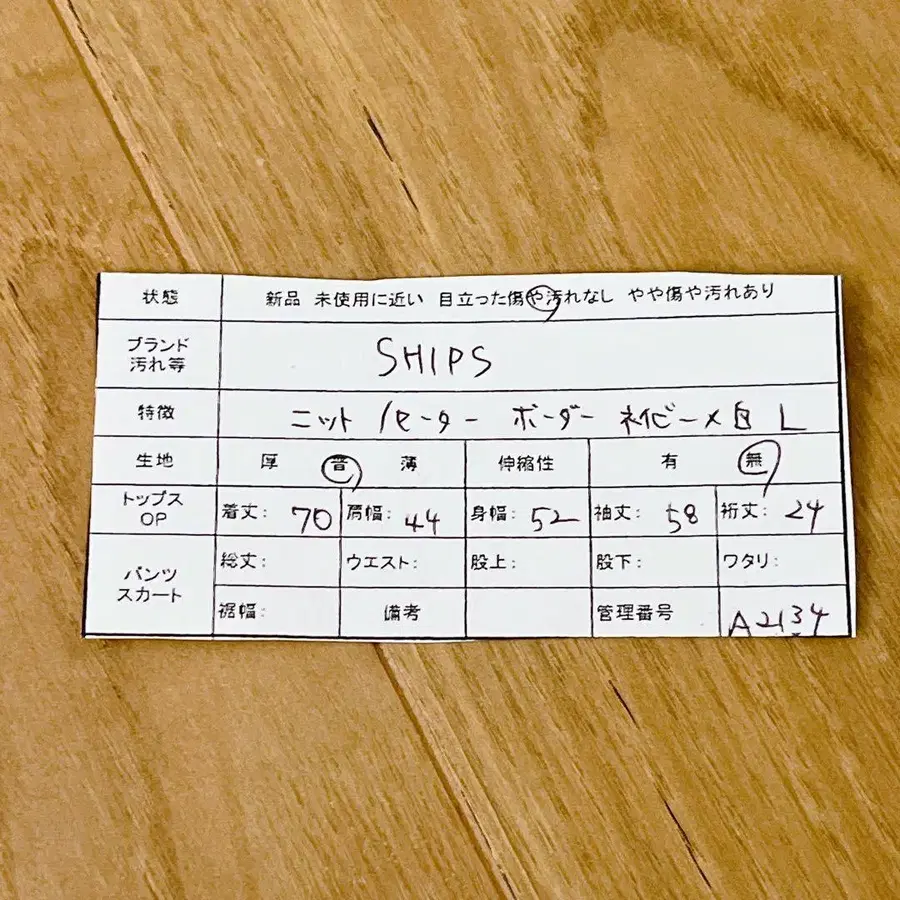 状態 新品 未使用に近い 目立った傷や汚れなし やや傷や汚れあり
ブランド
汚れ等 SHIPS
特徴 ニット /セーター ボーダー ネイビー×白 L
生地 厚 普 薄 伸縮性 有 無
トップス
OP 着丈: 70 肩幅: 44 身幅: 52 袖丈: 58 裄丈: 24
パンツ
スカート 総丈: ウエスト: 股上: 股下: ワタリ:
裾幅: 備考 管理番号 A2134